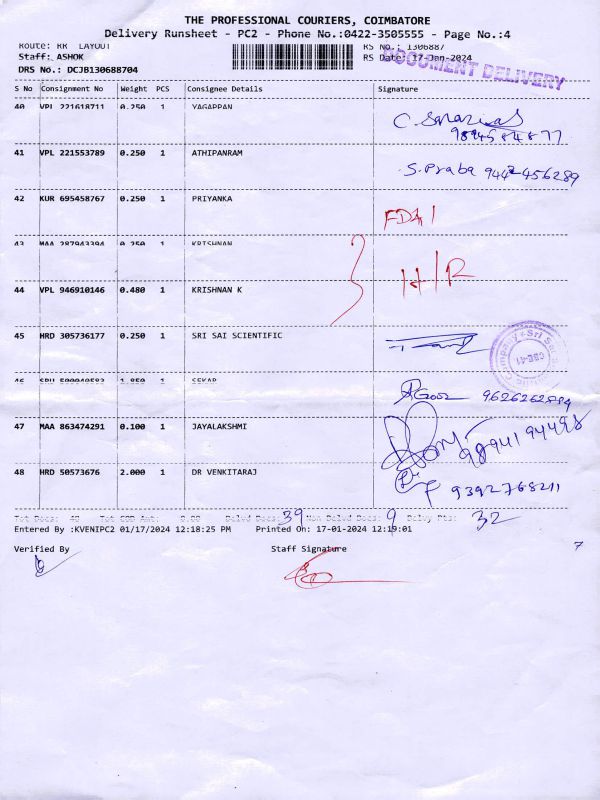 THE PROFESSIONAL COURIERS, COIMBATORE
Delivery Runsheet - PC2 - Phone No.:0422-3505555 - Page No.:4
Route: RR LAYOUT RS No.: 1306887
Staff: ASHOK RS Date: 17-Jan-2024
DOCUMENT DELIVERY
DRS No.: DCJB130688704
S No Consignment No Weight PCS Consignee Details Signature
40 VPL 221618711 0.250 1 YAGAPPAN
9894584877
41 VPL 221553789 0.250 1 ATHIPANRAM S. Praba 9442456289
42 KUR 695458767 0.250 1 PRIYANKA
43 MAA 287943394 0.250 1 KRISHNAN H/R
44 VPL 946910146 0.480 1 KRISHNAN K
45 HRD 305736177 0.250 1 SRI SAI SCIENTIFIC
46 1.850 1 SEKAR 9626262884
47 MAA 863474291 0.100 1 JAYALAKSHMI 9894194498
48 HRD 50573676 2.000 1 DR VENKITARAJ 9392768211
Tot Docs: 48 Tot COD Amt: 0.00 Delvd Docs: 39 Non Delvd Docs: 9 Delvy Pts: 32
Entered By :KVENIPC2 01/17/2024 12:18:25 PM Printed On: 17-01-2024 12:19:01
Verified By Staff Signature 7